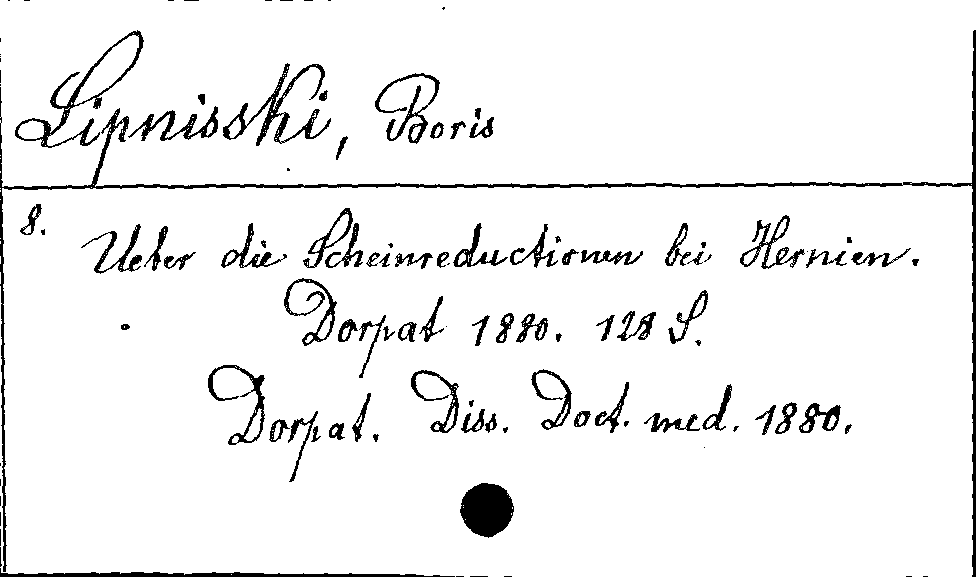 Lipnisski, Boris
8.
Ueber die Scheinreductionen bei Hernien.
Dorpat 1880. 128 S.
Dorpat. Diss. Doct. med. 1880.